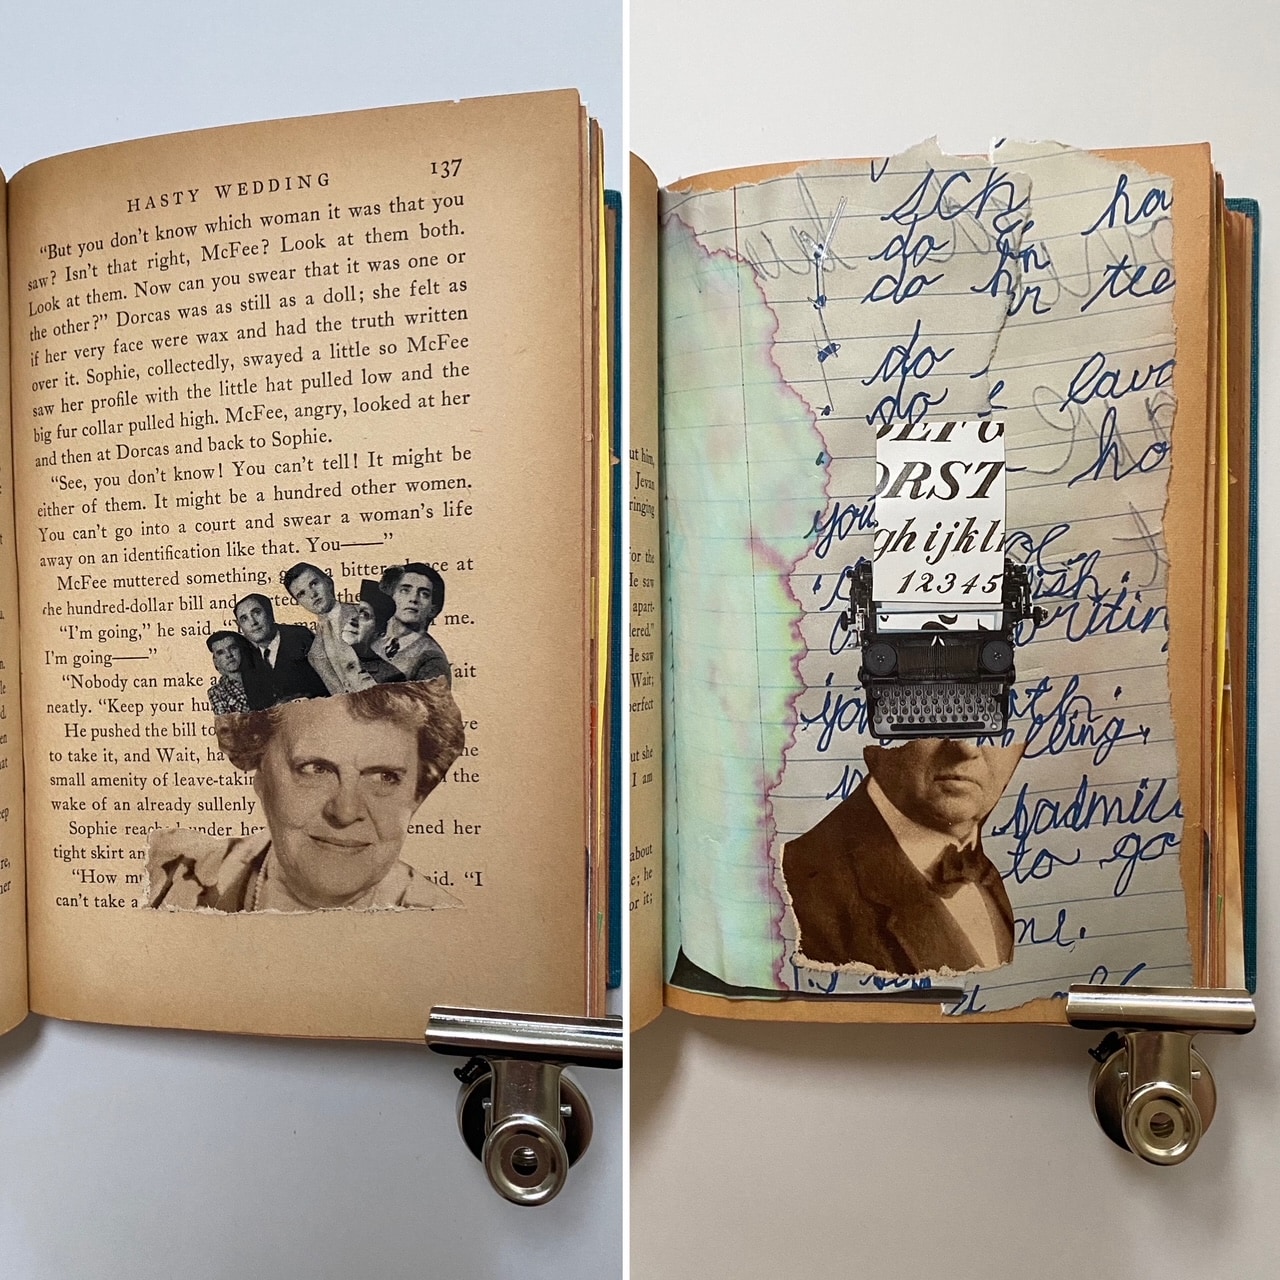 HASTY WEDDING 137
“But you don’t know which woman it was that you
saw? Isn’t that right, McFee? Look at them both.
Look at them. Now can you swear that it was one or
the other?” Dorcas was as still as a doll; she felt as
if her very face were wax and had the truth written
over it. Sophie, collectedly, swayed a little so McFee
saw her profile with the little hat pulled low and the
big fur collar pulled high. McFee, angry, looked at her
and then at Dorcas and back to Sophie.
“See, you don’t know! You can’t tell! It might be
either of them. It might be a hundred other women.
You can’t go into a court and swear a woman’s life
away on an identification like that. You——”
McFee muttered something, a bitter at
the hundred-dollar bill and the
“I’m going,” he said. me.
I’m going——”
“Nobody can make Wait
neatly. “Keep your
He pushed the bill to
to take it, and Wait,
small amenity of the
wake of an already sullenly
Sophie under her
tight skirt
“How said. “I
can’t take a
ut him,
Jevan
ringing
for the
He saw
apart-
dered.”
He saw
Wait;
perfect
but she
I am
about
e; he
or it;
do
do
do
do
ho
you
writing
to go
me.
ORST
ghijkl
12345